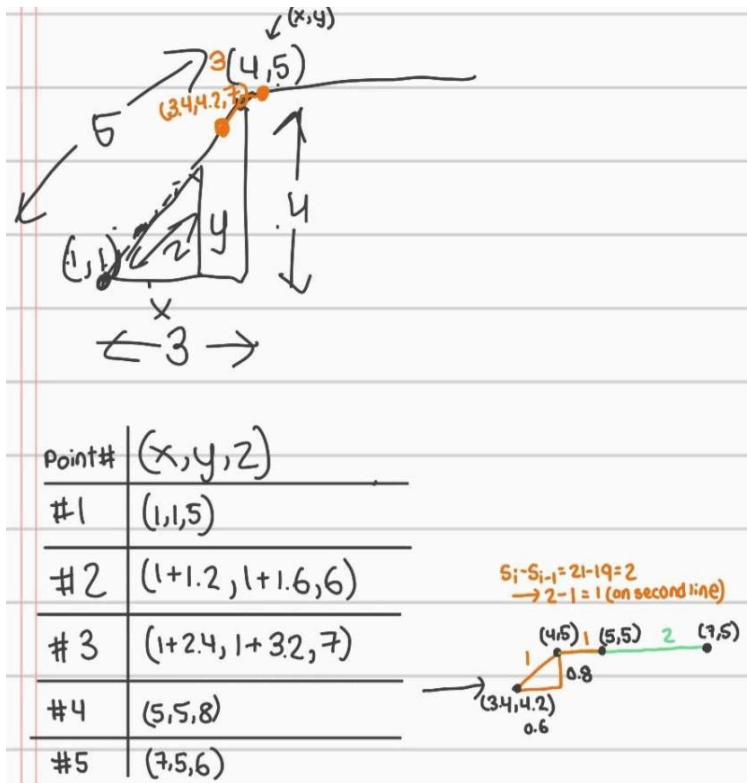 (x,y)
3 (4,5)
(3.4,4.2,7)
5
4
y
2
(1,1)
x
3
Point# (x,y,z)
#1 (1,1,5)
#2 (1+1.2, 1+1.6,6)
#3 (1+2.4, 1+3.2,7)
#4 (5,5,8)
#5 (7,5,6)
Si-Si-1=21-19=2
→ 2-1=1 (on second line)
(4,5) 1 (5,5) 2 (7,5)
1
0.8
(3.4,4.2)
0.6